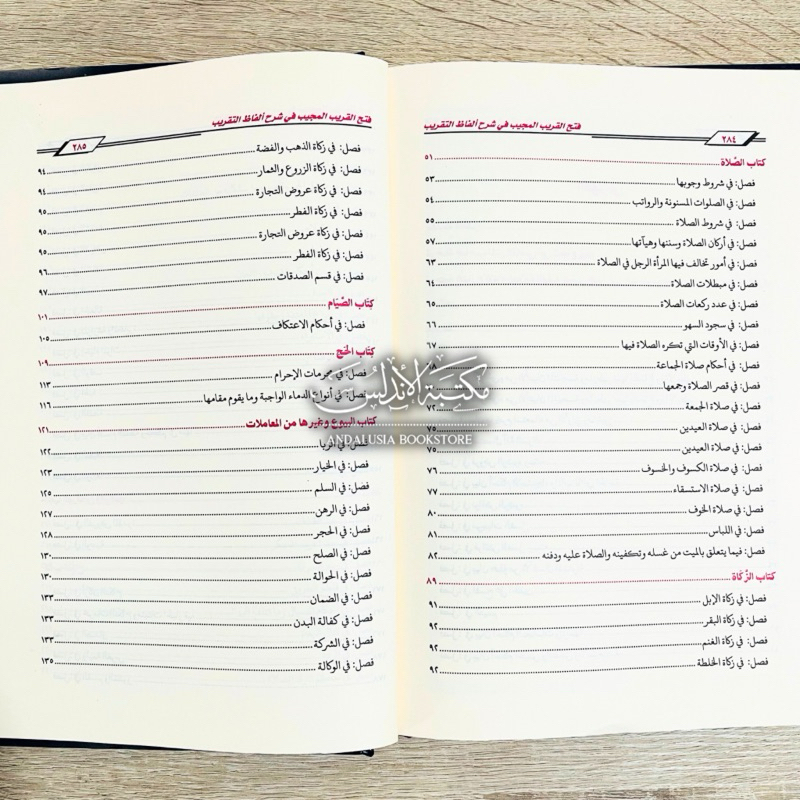 فتح القريب المجيب في شرح ألفاظ التقريب
٢٨٤
كتاب الصّلاة ٥١
فصل: في شروط وجوبها ٥٣
فصل: في الصلوات المسنونة والرواتب ٥٤
فصل: في شروط الصلاة ٥٥
فصل: في أركان الصلاة وسننها وهيآتها ٥٧
فصل: في أمور تخالف فيها المرأة الرجل في الصلاة ٦٣
فصل: في مبطلات الصلاة ٦٤
فصل: في عدد ركعات الصلاة ٦٥
فصل: في سجود السهو ٦٦
فصل: في الأوقات التي تكره الصلاة فيها ٦٧
فصل: في أحكام صلاة الجماعة
فصل: في قصر الصلاة وجمعها
فصل: في صلاة الجمعة ٧٢
فصل: في صلاة العيدين ٧٥
فصل: في صلاة العيدين ٧٥
فصل: في صلاة الكسوف والخسوف ٧٦
فصل: في صلاة الاستسقاء ٧٧
فصل: في صلاة الخوف ٨٠
فصل: في اللباس ٨١
فصل: فيما يتعلق بالميت من غسله وتكفينه والصلاة عليه ودفنه ٨٢
كتاب الزّكاة ٨٩
فصل: في زكاة الإبل ٩١
فصل: في زكاة البقر ٩٢
فصل: في زكاة الغنم ٩٢
فصل: في زكاة الخلطة ٩٢
فتح القريب المجيب في شرح ألفاظ التقريب
٢٨٥
فصل: في زكاة الذهب والفضة
فصل: في زكاة الزروع والثمار ٩٤
فصل: في زكاة عروض التجارة ٩٤
فصل: في زكاة الفطر ٩٥
فصل: في زكاة عروض التجارة ٩٥
فصل: في زكاة الفطر ٩٥
فصل: في قسم الصدقات ٩٦
٩٧
كِتَاب الصِّيَام ١٠١
فصل: في أحكام الاعتكاف ١٠٥
كِتَاب الحَج ١٠٩
فصل: في محرمات الإحرام ١١٣
فصل: في أنواع الدماء الواجبة وما يقوم مقامها ١١٦
كتاب البيوع وغيرها من المعاملات ١٢١
فصل: في الربا ١٢٢
فصل: في الخيار ١٢٣
فصل: في السلم ١٢٥
فصل: في الرهن ١٢٧
فصل: في الحجر ١٢٨
فصل: في الصلح ١٣٠
فصل: في الحوالة ١٣٠
فصل: في الضمان ١٣٣
فصل: في كفالة البدن ١٣٣
فصل: في الشركة ١٣٣
فصل: في الوكالة ١٣٥
مكتبة الأندلس
ANDALUSIA BOOKSTORE